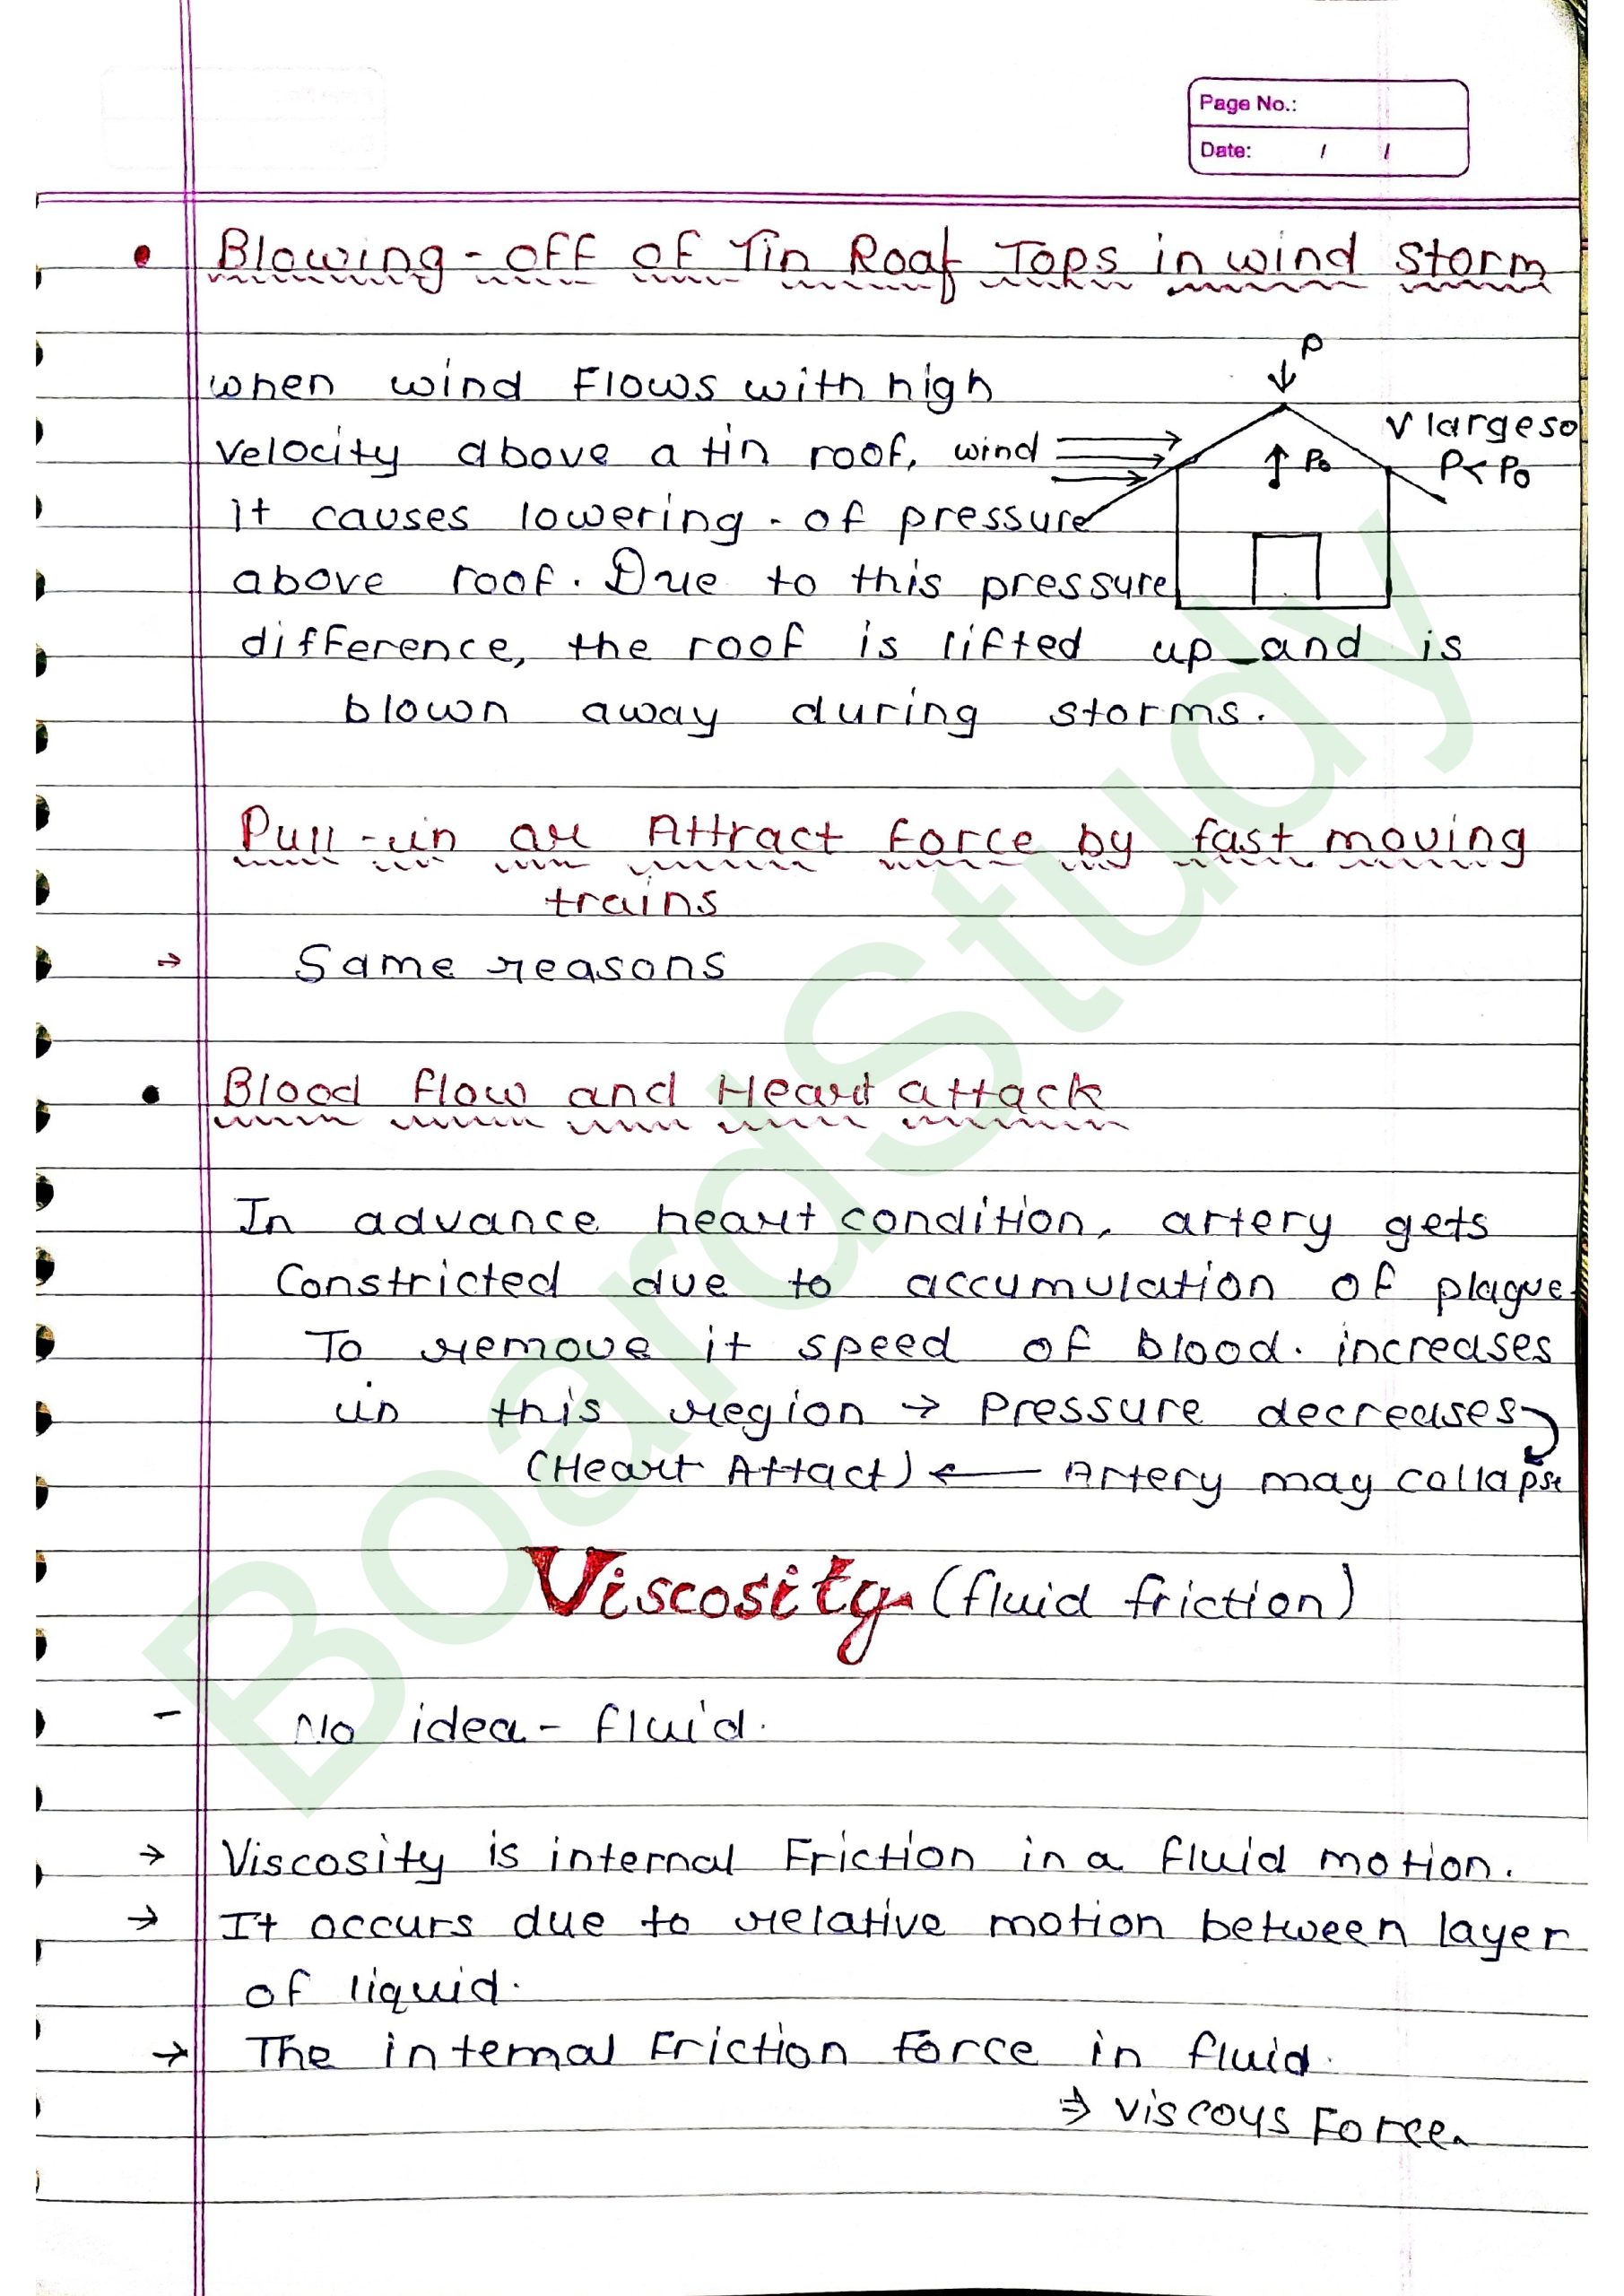 Page No.:
Date: / /
• Blowing-off of Tin Roof Tops in wind storm
P
when wind Flows with high
V large so
velocity above a tin roof, wind
Po
P< Po
It causes lowering - of pressure
above roof. Due to this pressure
difference, the roof is lifted up and is
blown away during storms.
Pull-in or Attract Force by fast moving
trains
⇒ Same reasons
• Blood flow and Heart attack
In advance heart condition, artery gets
Constricted due to accumulation of plague.
To remove it speed of blood. increases
in this region → Pressure decreases
(Heart Attact) ← Artery may collapse
Viscosity (fluid friction)
- No idea - fluid.
→ Viscosity is internal Friction in a fluid motion.
→ It occurs due to relative motion between layer
of liquid.
→ The internal Friction Force in fluid.
⇒ viscoys Force.
BoardStudy